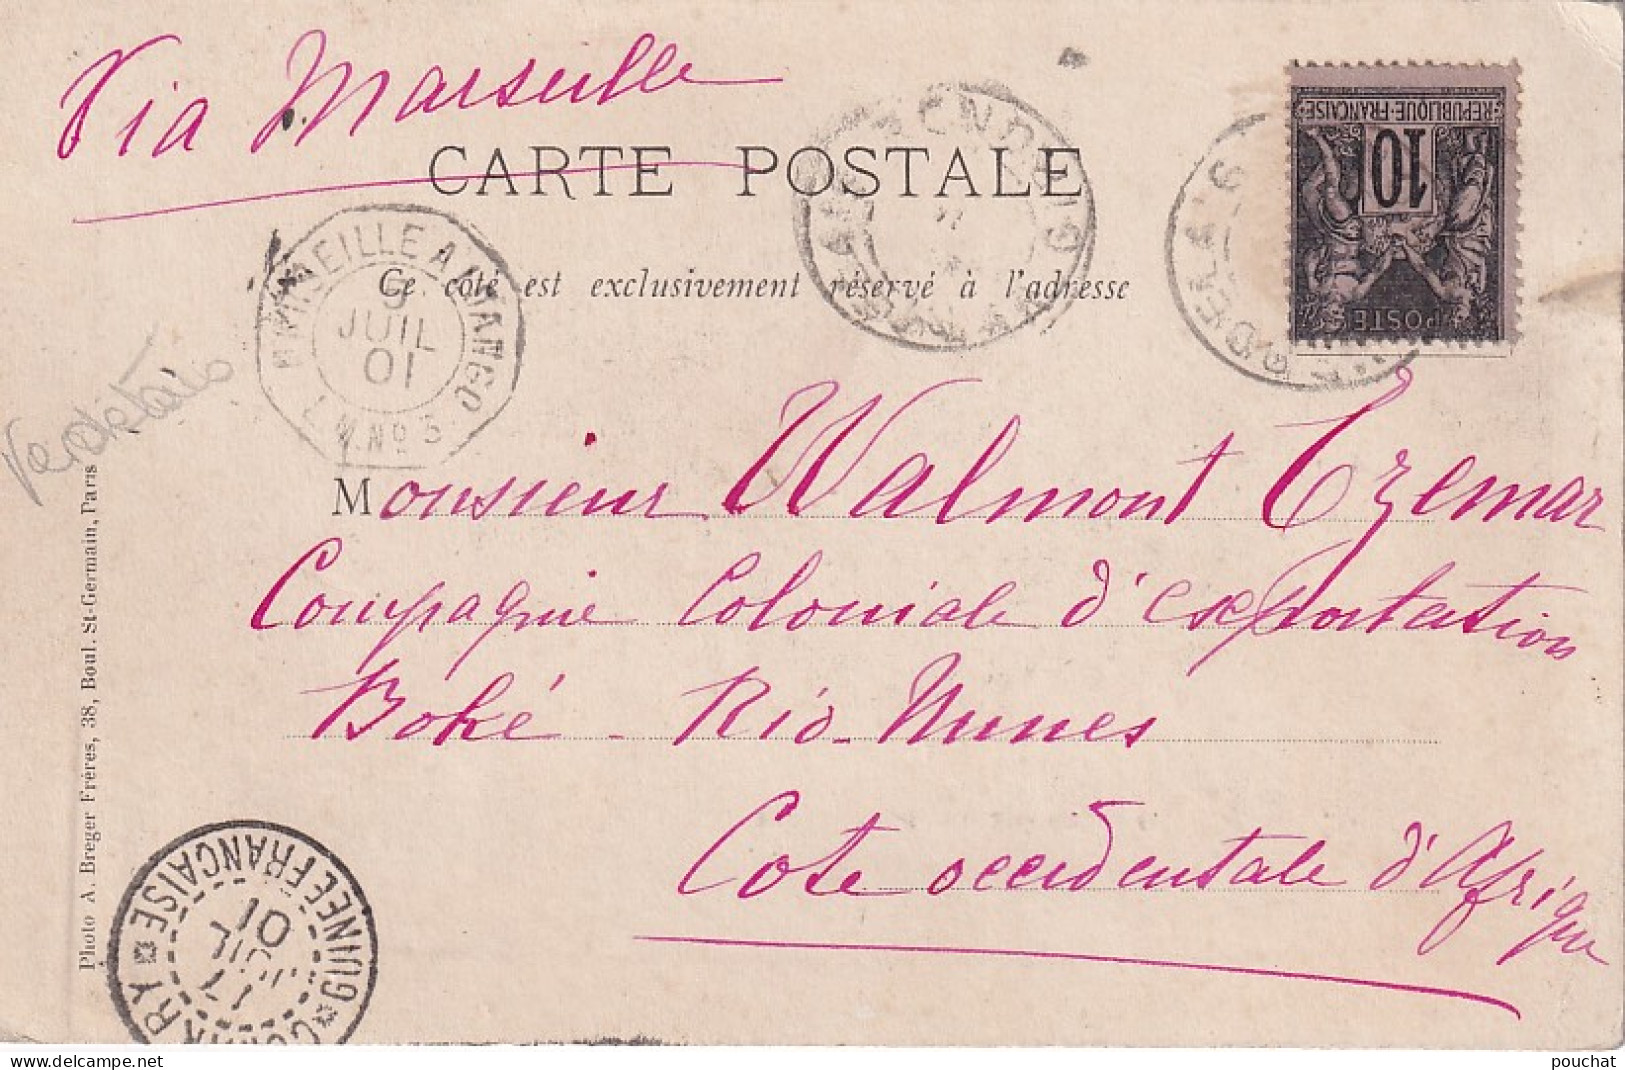 Via Marseille
CARTE POSTALE
Ce côté est exclusivement réservé à l'adresse
RÉPUBLIQUE-FRANÇAISE
10
POSTE
MARSEILLE A MARGO
9
JUIL
01
L.N. No 3
Monsieur Walmont Trémar
Compagnie Coloniale d'exportation
Boké - Rio-Nunes
Cote occidentale d'Afrique
Photo A. Breger Frères, 38, Boul. St-Germain, Paris
GUINÉE FRANCAISE
17
JUIL
01
delcampe.net
pouchat